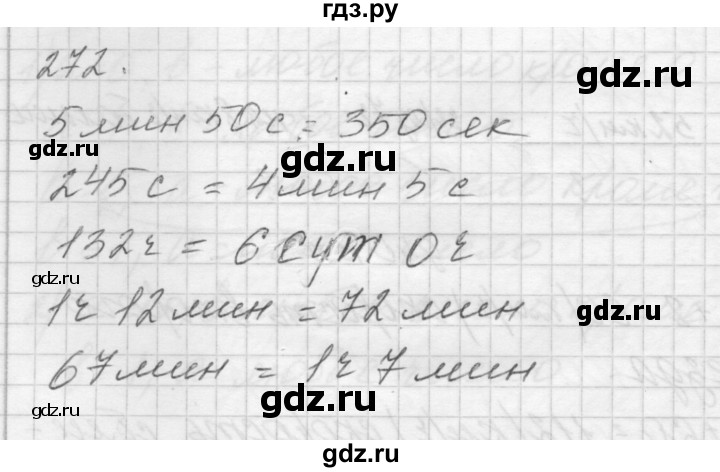 гдз.ру
272.
gdz.ru
5 мин 50 с = 350 сек
gdz.ru
gdz.ru
245 с = 4 мин 5 с
132 ч = 6 сут 0 ч
gdz.ru
1 ч 12 мин = 72 мин
gdz.ru
67 мин = 1 ч 7 мин
gdz.ru
gdz.ru
gdz.ru
gdz.ru